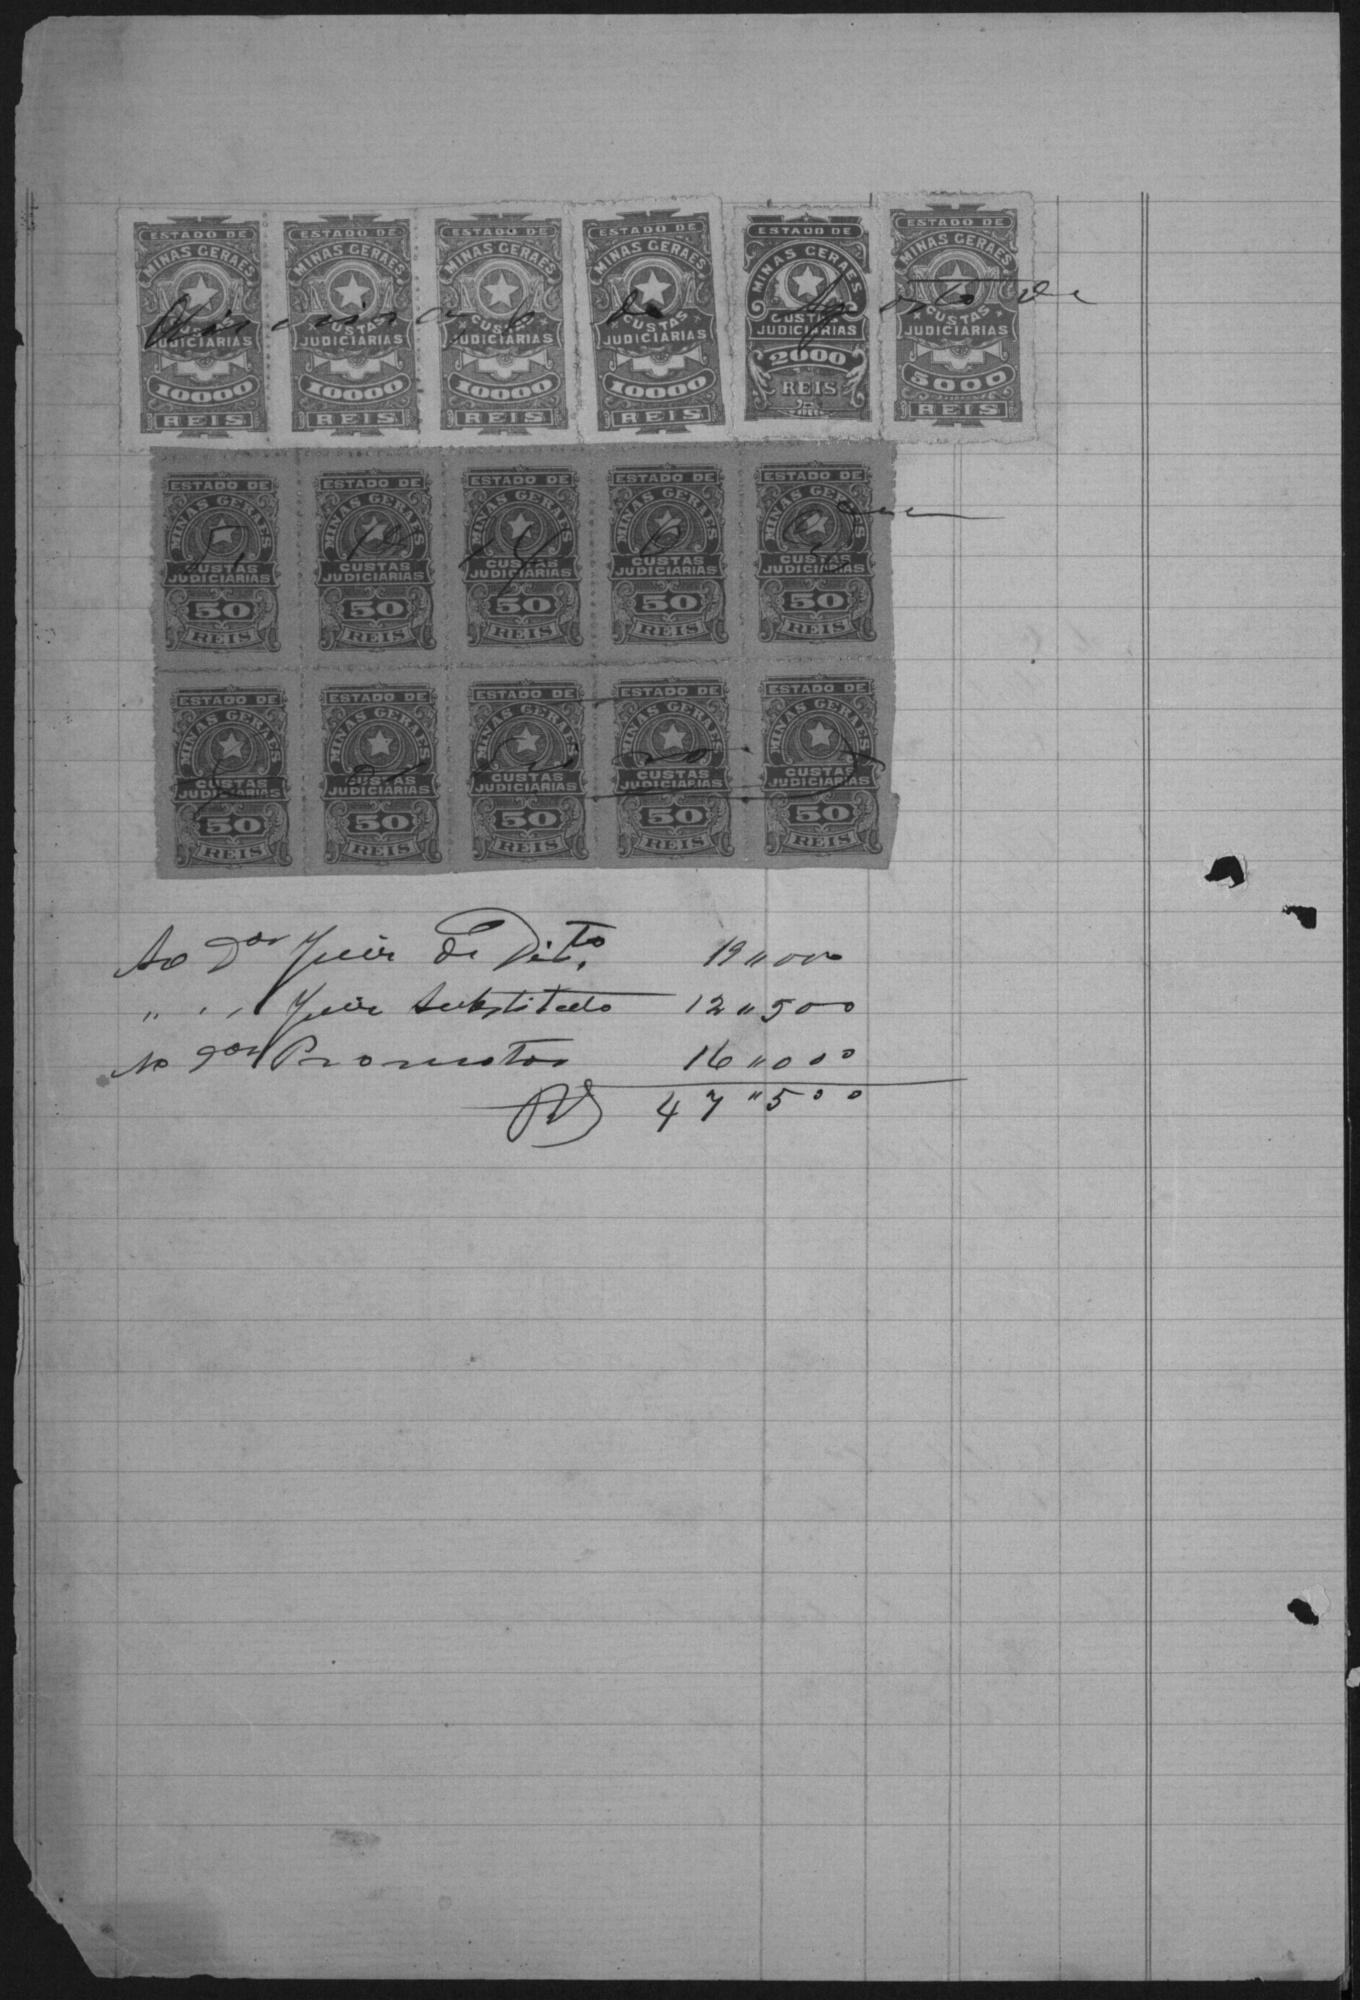 ESTADO DE MINAS GERAES CUSTAS JUDICIARIAS 10000 REIS
ESTADO DE MINAS GERAES CUSTAS JUDICIARIAS 10000 REIS
ESTADO DE MINAS GERAES CUSTAS JUDICIARIAS 10000 REIS
ESTADO DE MINAS GERAES CUSTAS JUDICIARIAS 10000 REIS
ESTADO DE MINAS GERAES CUSTAS JUDICIARIAS 2000 REIS
ESTADO DE MINAS GERAES CUSTAS JUDICIARIAS 5000 REIS
de Agosto de
ESTADO DE MINAS GERAES CUSTAS JUDICIARIAS 50 REIS
ESTADO DE MINAS GERAES CUSTAS JUDICIARIAS 50 REIS
ESTADO DE MINAS GERAES CUSTAS JUDICIARIAS 50 REIS
ESTADO DE MINAS GERAES CUSTAS JUDICIARIAS 50 REIS
ESTADO DE MINAS GERAES CUSTAS JUDICIARIAS 50 REIS
ESTADO DE MINAS GERAES CUSTAS JUDICIARIAS 50 REIS
ESTADO DE MINAS GERAES CUSTAS JUDICIARIAS 50 REIS
ESTADO DE MINAS GERAES CUSTAS JUDICIARIAS 50 REIS
ESTADO DE MINAS GERAES CUSTAS JUDICIARIAS 50 REIS
ESTADO DE MINAS GERAES CUSTAS JUDICIARIAS 50 REIS
Ao Dor Juiz de Dirto. 19"000
" " Juiz Substituto 12"500
Ao Dor Promotor 16"000
RS 47"500